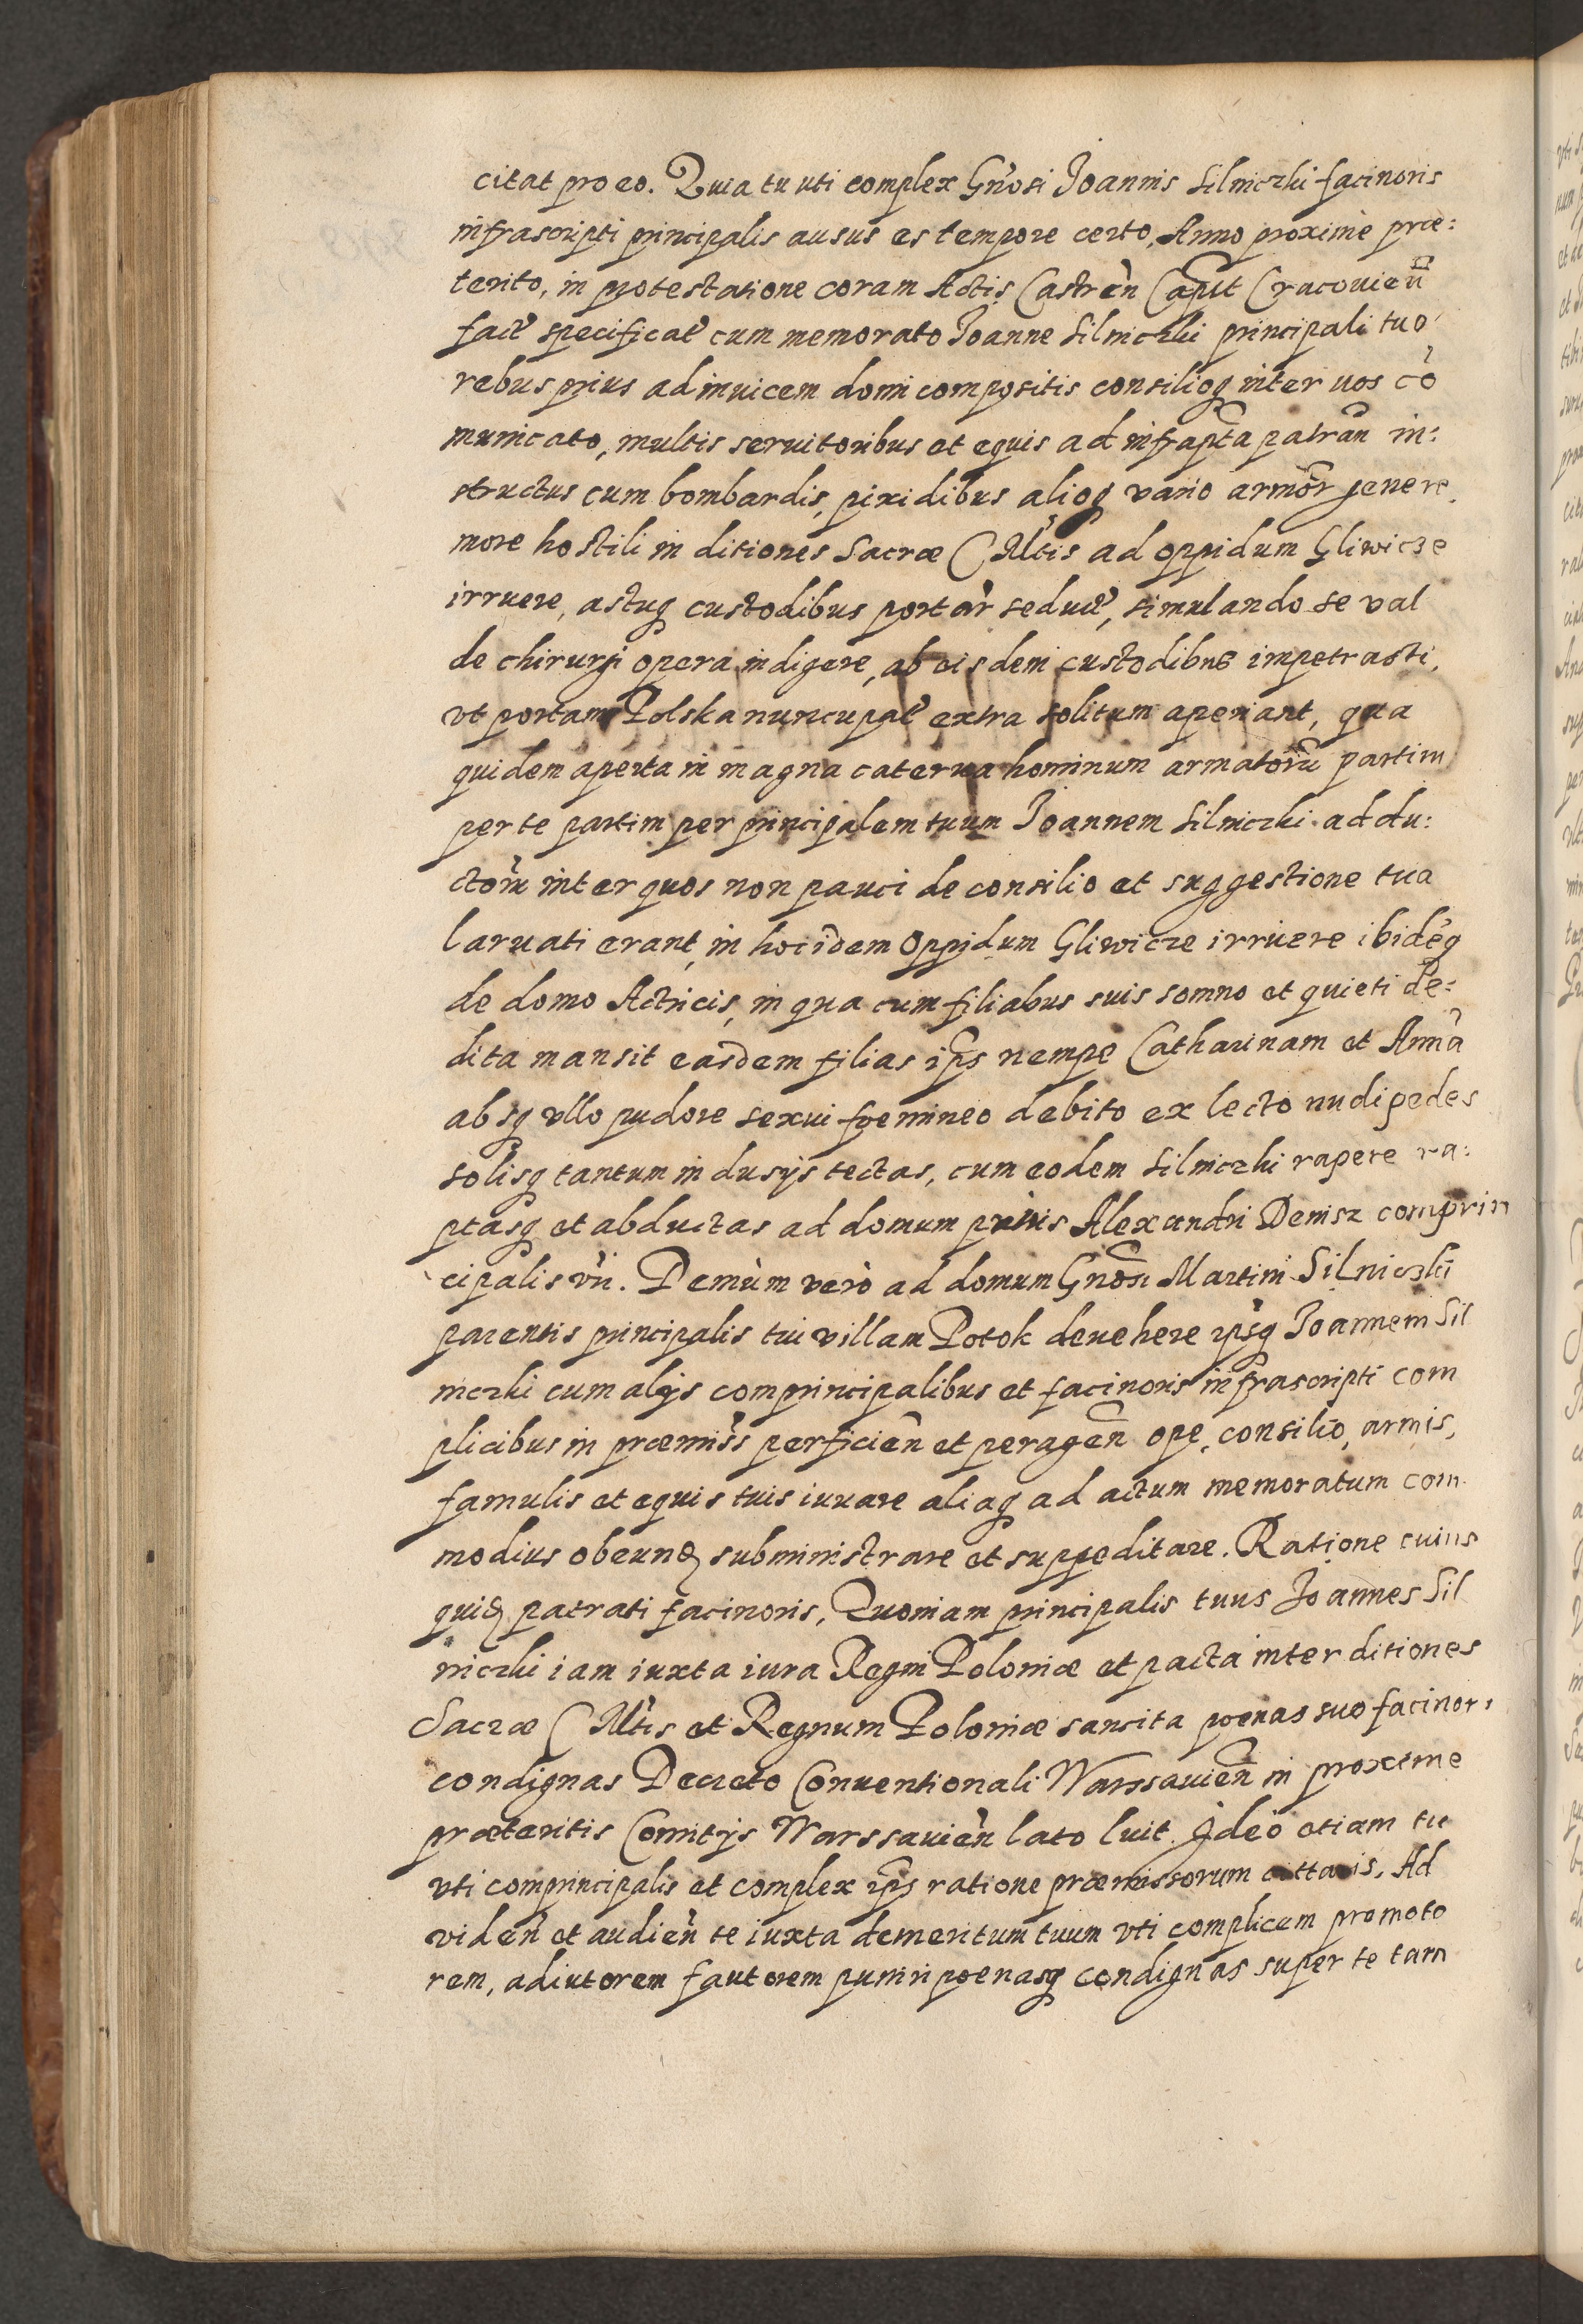 citat pro eo. Quia tu uti complex Gn̄osi Joannis Silniczki facinoris
infrascripti principalis ausus es tempore certo, Anno proxime præ:
terito, in protestatione coram Actis Castren̄ Capit Cracouien̄
fact̄ specificat̄ cum memorato Joanne Silniczki principali tuo
rebus prius adinuicem domi compositis consilioq̢ inter uos co͂
municato, multis seruitoribus et equis ad infrap̄ta patran̄ in:
structus cum bombardis, pixidibus alioq̢ vario armor̄ genere
more hostili in ditiones Sacræ C Mt̄is ad oppidum Gliwicze
irruere, astuq̢ custodibus portar̄ seduct̄, simulando se val
de chirurgi opera indigere, ab eisdem custodibus impetrasti,
vt portam Polska nuncupat̄ extra solitum aperiant, qua
quidem aperta in magna caterua hominum armatorū partim
per te partim per principalem tuum Joannem Silniczki addu:
ctorū inter quos non pauci de consilio et suggestione tua
laruati erant, in hoc idem oppidum Gliwicze irruere ibidēq̢
de domo Actricis, in qua cum filiabus suis somno et quieti de:
dita mansit easdem filias ip̄s nempe Catharinam et Annā
absq̢ vllo pudore sexui fœmineo debito ex lecto nudipedes
solisq̢ tantum indusijs tectas, cum eodem Silniczki rapere ra:
ptasq̢ et abductas ad domum prius Alexandri Denisz comprin
cipalis vr̄i. Demùm verò ad domum Gn̄osi Martini Silniczki
parentis principalis tui villam Potok deuehere ip̄sq̢ Joannem Sil
niczki cum alijs comprincipalibus et facinoris infrascripti com
plicibus in præmiss̄ perficien̄ et peragen̄ ope, consilio, armis,
famulis et equis tuis iuuare aliaq̢ ad actum memoratum com
modius obeund̨ subministrare et suppeditare. Ratione cuius
quid̨ patrati facinoris, Quoniam principalis tuus Joannes Sil
niczki iam iuxta iura Regni Poloniæ et pacta inter ditiones
Sacræ C Mt̄is et Regnum Poloniæ sancita poenas suo facinori
condignas Decreto Conuentionali Warssauien̄ in proxime
præteritis Comitijs Warssauien̄ lato luit. Ideò etiam tu
vti comprincipalis et complex ip̄s ratione præmissorum cittaris. Ad
viden̄ et audien̄ te iuxta demeritum tuum vti complicem promoto
rem, adiutorem fautorem puniri poenasq̢ condignas super te tam